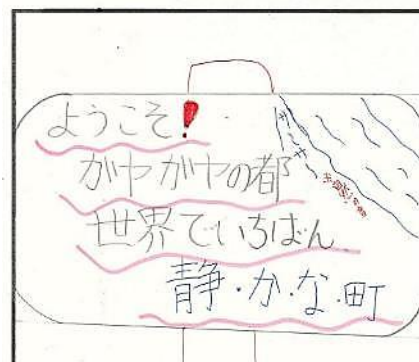 ようこそ!
ガヤガヤの都
世界でいちばん
静・か・な・町